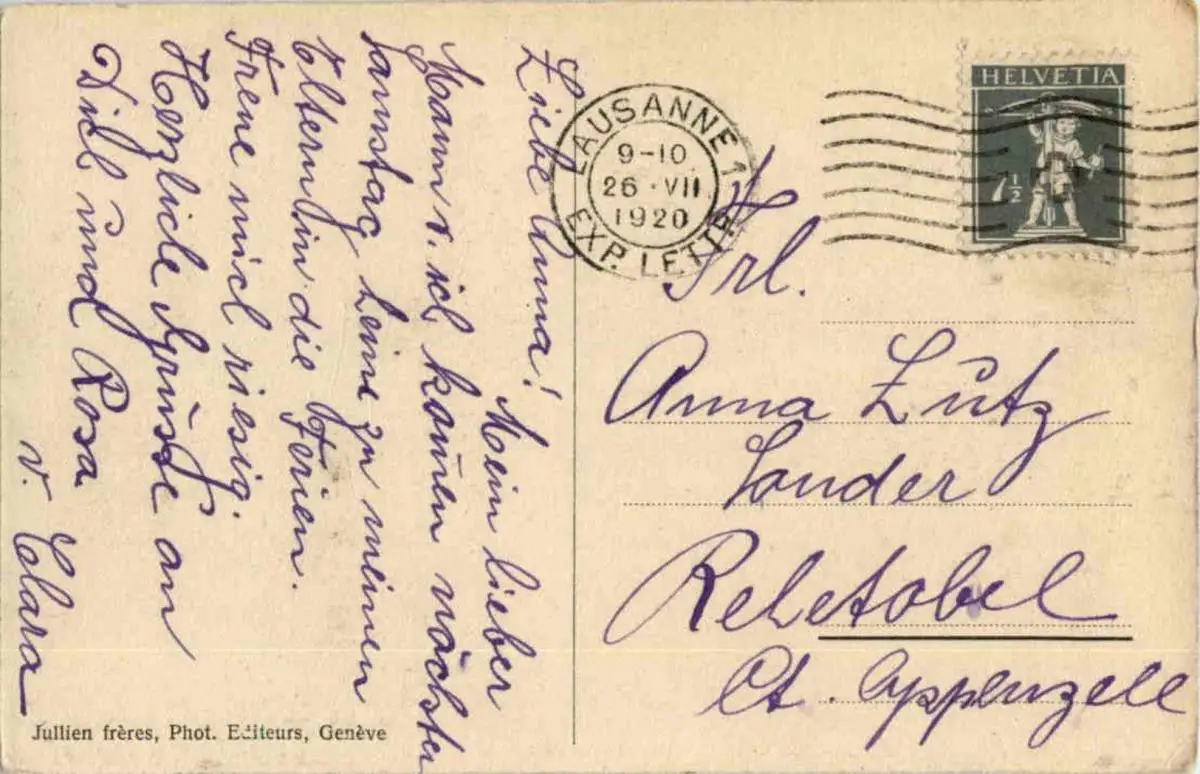 Liebe Anna!
Mein lieber
Mann u. ich kom̄en nächsten
Samstag heim zu meinen
Eltern in die Ferien.
Freue mich riesig.
Herzliche Grüsse an
Dich und Rosa
v. Clara
Jullien frères, Phot. Editeurs, Genève
LAUSANNE 1
9-10
26·VII
1920
EXP. LETTR.
HELVETIA
7½
Frl.
Anna Lutz
Sonder
Rehetobel
Ct. Appenzell